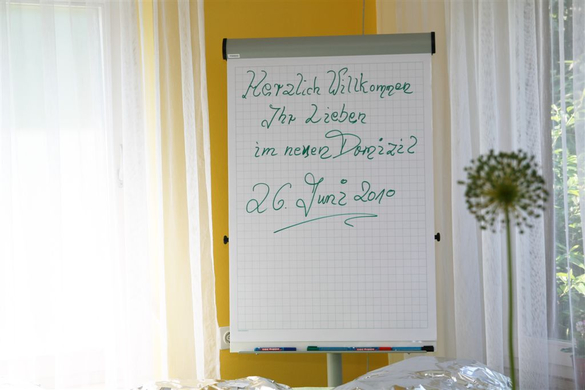 Herzlich Willkommen
Ihr Lieben
im neuen Domizil
26. Juni 2010